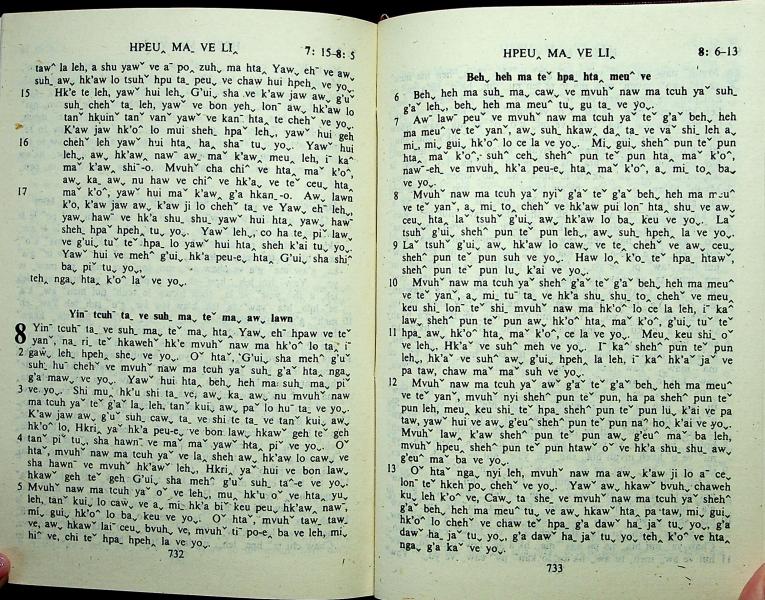 HPEU‸ MA_ VE LI‸ 7: 15-8: 5
tawˆ la leh, a shu yawˇ ve aˉ po‸ zuh_ ma hta‸ Yaw‸ ehˉ ve aw⌄
suh_ aw⌄ hk'aw lo tsuhˇ hpu ta_ peu⌄ ve chaw hui hpeh⌄ ve yo⌄.
15 Hk'e te leh, yawˇ hui leh⌄ G'ui⌄ sha ve k'aw jaw aw⌄ g'uˇ
suh_ chehˇ ta_ leh, yawˇ ve bon yeh⌄ lonˉ aw⌄ hk'aw lo
tanˇ hkuinˇ tanˇ vanˇ yawˇ ve kanˉ hta‸ te chehˇ ve yo⌄.
K'aw jaw hk'oˆ lo mui sheh_ hpaˇ leh⌄, yawˇ hui geh
16 chehˇ leh yawˇ hui hta‸ ha_ shaˉ tu_ yo⌄. Yawˇ hui
leh⌄, aw⌄ hk'awˇ nawˉ aw⌄ maˇ k'aw⌄ meu⌄ leh, iˉ kaˆ
maˇ k'aw⌄ shiˉ-o⌄. Mvuhˇ cha chiˆ ve hta‸ maˇ k'oˆ,
aw⌄ ka_ aw⌄ nu hawˇ ve chiˆ ve hk'a⌄ ve teˇ ceu⌄ hta‸
17 maˇ k'oˆ, yawˇ hui maˇ k'aw⌄ g'a hkan_-o⌄. Aw⌄ lawn
k'o⌄ k'aw jaw aw⌄ k'aw ji lo chehˇ ta_ ve Yaw⌄ ehˉ leh⌄,
yaw⌄ hawˉ ve hk'a shu_ shu_ yawˇ hui hta‸ yaw⌄ hawˇ
sheh_ hpaˇ hpehˇ tu_ yo⌄. Yawˇ leh⌄, co ha_ te piˇ law⌄
ve g'ui⌄ tuˇ teˇ hpa_ lo yawˇ hui hta‸ sheh_ k'ai tu_ yo⌄.
Yawˇ hui ve mehˆ g'uiˇ hk'a peu-e⌄ hta‸ G'ui⌄ sha shiˆ
ba⌄ piˇ tu_ yo⌄,
teh_ nga_ hta‸ k'oˆ laˇ ve yo⌄.
Yinˇ tcuhˆ ta_ ve suh_ ma_ teˇ ma_ aw⌄ lawn
8 Yinˇ tcuhˆ ta_ ve suh_ ma⌄ teˇ ma_ hta‸ Yaw⌄ ehˉ hpaw ve teˇ
yanˇ, na_ ri_ teˇ hkawehˇ hk'e mvuhˇ naw ma hk'oˆ lo ta‸ iˇ
2 gaw⌄ leh, hpeh⌄ she⌄ ve yo⌄. Oˇ htaˇ, G'ui⌄ sha mehˆ g'uˇ
suh_ huˉ chehˇ ve mvuhˇ naw ma tcuh yaˇ suh_ g'aˇ hta‸ nga_
g'a maw⌄ ve yo⌄. Yawˇ hui hta‸ beh⌄ heh ma suh_ ma_ piˇ
3 ve yo⌄. Shi mu_ hk'u shi ta_ ve, aw⌄ ka_ aw⌄ nu mvuhˇ naw
ma tcuh yaˇ teˇ g'aˇ la_ leh, tanˇ kui_ aw⌄ paˇ lo huˉ ta_ ve yo⌄.
K'aw jaw aw⌄ g'uˇ suh_ caw⌄ ta_ ve shi te ta_ ve tanˇ kui_ aw⌄
hk'oˆ lo, Hkri‸ yaˇ hk'a peu-e⌄ ve bon law⌄ hkawˇ geh teˇ geh
4 tanˇ piˇ tu_, sha hawnˇ ve maˇ maˇ yawˇ hta‸ piˇ ve yo⌄. Oˇ
htaˇ, mvuhˇ naw ma tcuh yaˇ ve la_ sheh aw⌄ hk'aw lo caw⌄ ve
sha hawnˇ ve mvuhˇ hk'awˇ leh⌄, Hkri‸ yaˇ hui ve bon law⌄
hkawˇ geh teˇ geh G'ui⌄ sha mehˆ g'uˇ suh_ taˆ-e ve yo⌄.
5 Mvuhˇ naw ma tcuh yaˇ oˇ ve leh⌄, mu_ hk'u oˇ ve hta‸ yu⌄
leh, tanˇ kui_ lo caw⌄ ve a_ mi_ hk'a biˇ keu peu⌄ hk'aw⌄ nawˇ,
mi⌄ gui_ hk'oˆ lo ba⌄ keu ve yo⌄. Oˇ htaˇ, mvuhˇ taw_ taw_
ve, aw⌄ hkawˇ laiˇ ceu⌄ bvuh_ ve, mvuhˇ tiˇ po-e⌄ ba ve leh, mi⌄
hiˆ ve, chi teˇ hpa_ hpeh⌄ la ve yo⌄.
732
HPEU‸ MA_ VE LI‸ 8: 6-13
Beh⌄ heh ma teˇ hpa_ hta‸ meuˆ ve
6 Beh⌄ heh ma suh_ ma_ caw⌄ ve mvuhˇ naw ma tcuh yaˇ suh_
g'aˇ leh⌄, beh⌄ heh ma meuˆ tu_ gu ta_ ve yo⌄.
7 Awˇ lawˉ peuˇ ve mvuhˇ naw ma tcuh yaˇ teˇ g'aˇ beh⌄ heh
ma meuˆ ve teˇ yanˇ, aw⌄ suh_ hkaw⌄ da‸ ta_ ve vaˇ shi_ leh a_
mi_ mi⌄ gui_ hk'oˆ lo ce la ve yo⌄. Mi⌄ gui_ shehˆ pun teˇ pun
hta‸ maˇ k'oˆ, suhˇ ceh⌄ shehˆ pun teˇ pun hta‸ maˇ k'oˆ,
nawˉ-eh⌄ ve mvuhˇ hk'a peu-e⌄ hta‸ maˇ k'oˆ, a_ mi_ to⌄ ba⌄
ve yo⌄.
8 Mvuhˇ naw ma tcuh yaˇ nyiˇ g'aˇ teˇ g'aˇ beh⌄ heh ma meuˆ
ve teˇ yanˇ, a_ mi_ to‸ chehˇ ve hk'aw pui lonˉ hta‸ shu⌄ ve aw⌄
ceu⌄ hta‸ laˇ tsuhˇ g'ui⌄ aw⌄ hk'aw lo ba⌄ keu ve yo⌄. Laˇ
tsuhˇ g'ui⌄ shehˆ pun teˇ pun leh⌄, aw⌄ suh_ hpeh⌄ la ve yo⌄.
9 Laˇ tsuhˇ g'ui⌄ aw⌄ hk'aw lo caw⌄ ve te⌄ chehˇ ve aw⌄ ceu⌄
shehˆ pun teˇ pun suh ve yo⌄. Haw lo‸ k'o_ teˇ hpa_ htaw⌄
shehˆ pun teˇ pun lu⌄ k'ai ve yo⌄.
10 Mvuhˇ naw ma tcuh yaˇ shehˆ g'aˇ teˇ g'aˇ beh⌄ heh ma meuˆ
ve teˇ yanˇ, a_ mi_ tuˉ ta_ ve hk'a shu_ shu_ to‸ chehˇ ve meu⌄
keu shi_ lonˉ teˇ shi_ mvuhˇ naw ma hk'oˆ lo ce la leh, iˉ kaˆ
law⌄ shehˆ pun teˇ pun aw⌄ hk'oˆ hta‸ maˇ k'oˆ, g'uiˇ tu⌄ teˇ
11 hpa_ aw⌄ hk'oˆ hta‸ maˇ k'oˆ, ce la ve yo⌄. Meu⌄ keu shi_ oˇ
ve leh⌄, Hk'aˇ ve suhˆ meh ve yo⌄. Iˉ kaˆ shehˆ pun teˇ pun
leh⌄, hk'aˇ ve suhˆ aw⌄ g'ui⌄ hpeh⌄ la leh, iˉ kaˆ hk'aˇ jaˇ ve
pa taw, chaw maˇ maˇ suh ve yo⌄.
12 Mvuhˇ naw ma tcuh yaˇ awˆ g'aˇ teˇ g'aˇ beh⌄ heh ma meuˆ
ve te yanˇ, mvuhˇ nyi shehˆ pun teˇ pun, ha pa shehˆ pun teˇ
pun leh, meu⌄ keu shi_ teˇ hpa_ shehˆ pun teˇ pun lu⌄ k'ai ve pa
taw, yawˇ hui ve aw⌄ g'euˆ shehˆ pun teˇ pun naˆ ho‸ k'ai ve yo⌄.
Mvuhˇ law⌄ k'aw shehˆ pun teˇ pun aw⌄ g'euˆ maˇ ba leh,
mvuhˇ hpeu⌄ shehˆ pun teˇ pun htawˇ oˇ ve hk'a shu_ shu_ aw⌄
g'euˆ maˇ ba ve yo⌄.
13 Oˇ htaˇ nga_ nyi leh, mvuhˇ naw ma aw⌄ k'aw ji lo aˉ ce⌄
lonˉ teˇ hkeh po⌄ chehˇ ve yo⌄. Yawˇ aw⌄ hkawˇ bvuh_ chaweh
ku⌄ leh k'oˆ ve, Caw⌄ ta_ she_ ve mvuhˇ naw ma tcuh yaˇ shehˆ
g'aˇ beh⌄ heh ma meuˆ tu_ ve aw⌄ hkawˇ hta‸ pa taw, mi⌄ gui_
hk'oˆ lo chehˇ ve chaw teˇ hpa_ g'a dawˇ ha_ jaˇ tu_ yo⌄, g'a
dawˇ ha_ jaˇ tu_ yo⌄, g'a dawˇ ha_ jaˇ tu_ yo⌄, teh_ k'oˆ ve hta‸
nga_ g'a kaˇ ve yo⌄.
733